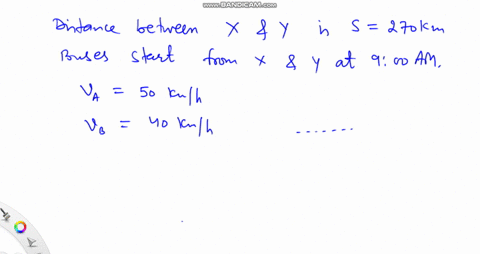 WWW.BANDICAM.COM
Distance between X & Y is S = 270 km
Buses start from X & Y at 9:00 AM.
V_A = 50 km/h
V_B = 40 km/h .......